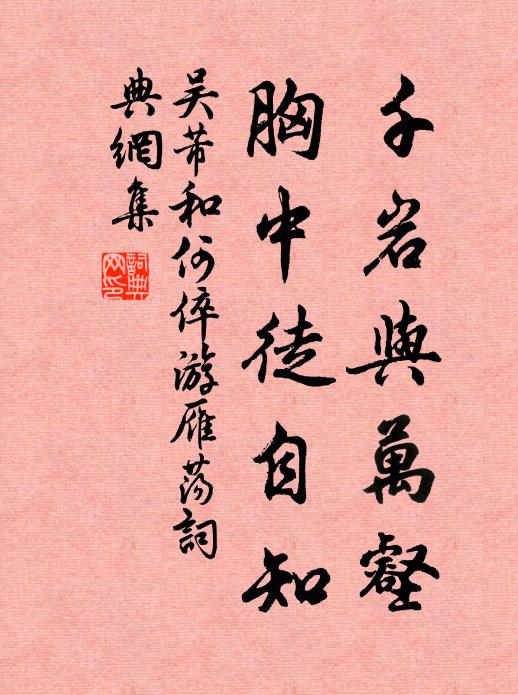 千岩與萬壑
胸中徒自知
吴芾和何倅游雁蕩詞
典網集
詞典
网印